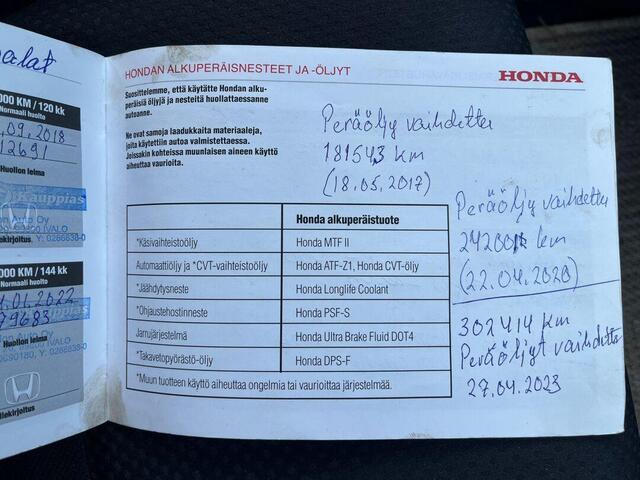 alat
000 KM / 120 kk
Normaali huolto
.09.2018
12691
Huollon leima
Kauppias
on Auto Oy
IVALO
Y: 0286838-0
ekirjoitus
000 KM / 144 kk
Normaali huolto
.01.2022
79683
Huollon leima
Kauppias
Auto Oy
IVALO
0286838-0
lekirjoitus
HONDAN ALKUPERÄISNESTEET JA -ÖLJYT
HONDA
Suosittelemme, että käytätte Hondan alku-
peräisiä öljyjä ja nesteitä huollattaessanne
autoanne.
Ne ovat samoja laadukkaita materiaaleja,
joita käytettiin autoa valmistettaessa.
Joissakin kohteissa muunlaisen aineen käyttö
aiheuttaa vaurioita.
Peräöljy vaihdettu
181543 km
(18.05.2017)
Honda alkuperäistuote
*Käsivaihteistoöljy Honda MTF II
Automaattiöljy ja *CVT-vaihteistoöljy Honda ATF-Z1, Honda CVT-öljy
*Jäähdytysneste Honda Longlife Coolant
*Ohjaustehostinneste Honda PSF-S
Jarrujärjestelmä Honda Ultra Brake Fluid DOT4
*Takavetopyörästö-öljy Honda DPS-F
*Muun tuotteen käyttö aiheuttaa ongelmia tai vaurioittaa järjestelmää.
Peräöljy vaihdettu
km
(22.04.2020)
302414 km
Peräöljyt vaihdettu
27.04.2023